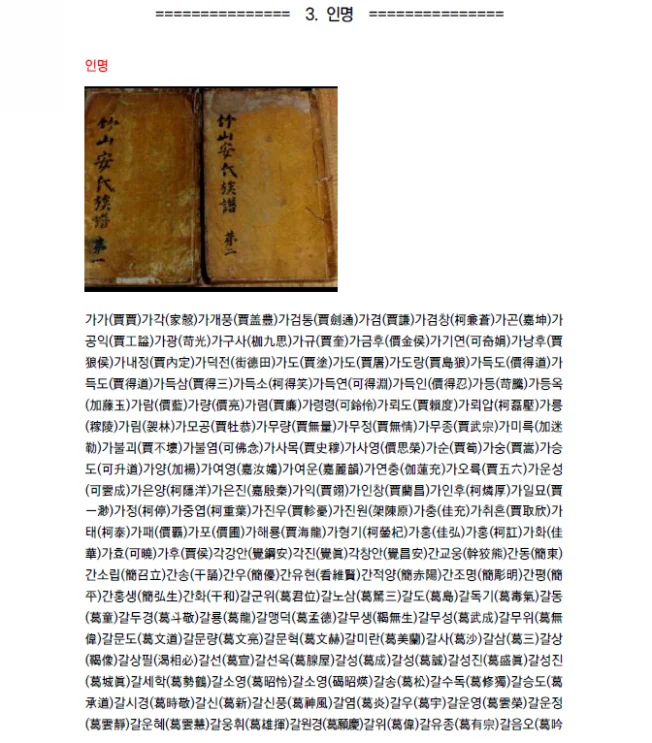 =============== 3. 인명 ===============
인명
竹山安氏族譜 第一
竹山安氏族譜 第二
가가(賈賈)가각(家慤)가개풍(賈盖豊)가검통(賈劍通)가겸(賈謙)가겸창(柯兼蒼)가곤(嘉坤)가
공익(賈工謚)가광(苛光)가구사(枷九思)가규(賈奎)가금후(價金侯)가기연(可奇娟)가낭후(賈
狼侯)가내정(賈內定)가덕전(街德田)가도(賈塗)가도(賈屠)가도랑(賈島狼)가득도(價得道)가
득도(賈得道)가득삼(賈得三)가득소(柯得笑)가득연(可得淵)가득인(價得忍)가등(苛騰)가등옥
(加藤玉)가람(價藍)가량(價亮)가렴(賈廉)가령령(可鈴伶)가뢰도(賈賴度)가뢰압(柯磊壓)가릉
(稼陵)가림(袈林)가모공(賈牡恭)가무량(賈無量)가무정(賈無情)가무종(賈武宗)가미륵(加迷
勒)가불괴(賈不壞)가불염(可佛念)가사목(賈史穆)가사영(價思榮)가순(賈筍)가숭(賈嵩)가승
도(可升道)가양(加楊)가여영(嘉汝孃)가여운(嘉麗韻)가연충(伽蓮充)가오륙(賈五六)가운성
(可雲成)가은양(柯隱洋)가은진(嘉殷秦)가익(賈翊)가인창(賈蘭昌)가인후(柯燐厚)가일묘(賈
一渺)가정(柯停)가중엽(柯重葉)가진우(賈軫憂)가진원(架陳原)가충(佳充)가취흔(賈取欣)가
태(柯泰)가패(價霸)가포(價圃)가해룡(賈海龍)가형기(柯螢杞)가홍(佳弘)가홍(柯訌)가화(佳
華)가효(可曉)가후(賈侯)각강안(覺鋼安)각진(覺眞)각창안(覺昌安)간교웅(幹狡熊)간동(簡東)
간소립(簡召立)간송(干誦)간우(簡優)간유현(看維賢)간적양(簡赤陽)간조명(簡彫明)간평(簡
平)간홍생(簡弘生)간화(干和)갈군위(葛君位)갈노삼(葛駑三)갈도(葛島)갈독기(葛毒氣)갈동
(葛童)갈두경(葛斗敬)갈룡(葛龍)갈맹덕(葛孟德)갈무생(鞨無生)갈무성(葛武成)갈무위(葛無
偉)갈문도(葛文道)갈문량(葛文亮)갈문혁(葛文赫)갈미란(葛美蘭)갈사(葛沙)갈삼(葛三)갈상
(鞨像)갈상필(渴相必)갈선(葛宣)갈선옥(葛腺屋)갈성(葛成)갈성(葛誠)갈성진(葛盛眞)갈성진
(葛城眞)갈세학(葛勢鶴)갈소영(葛昭怜)갈소영(碣昭煐)갈송(葛松)갈수독(葛修獨)갈승도(葛
承道)갈시경(葛時敬)갈신(葛新)갈신풍(葛神風)갈염(葛炎)갈우(葛宇)갈운영(葛雲榮)갈운정
(葛雲靜)갈운혜(葛雲慧)갈웅휘(葛雄揮)갈원경(葛願慶)갈위(葛偉)갈유종(葛有宗)갈음오(葛吟